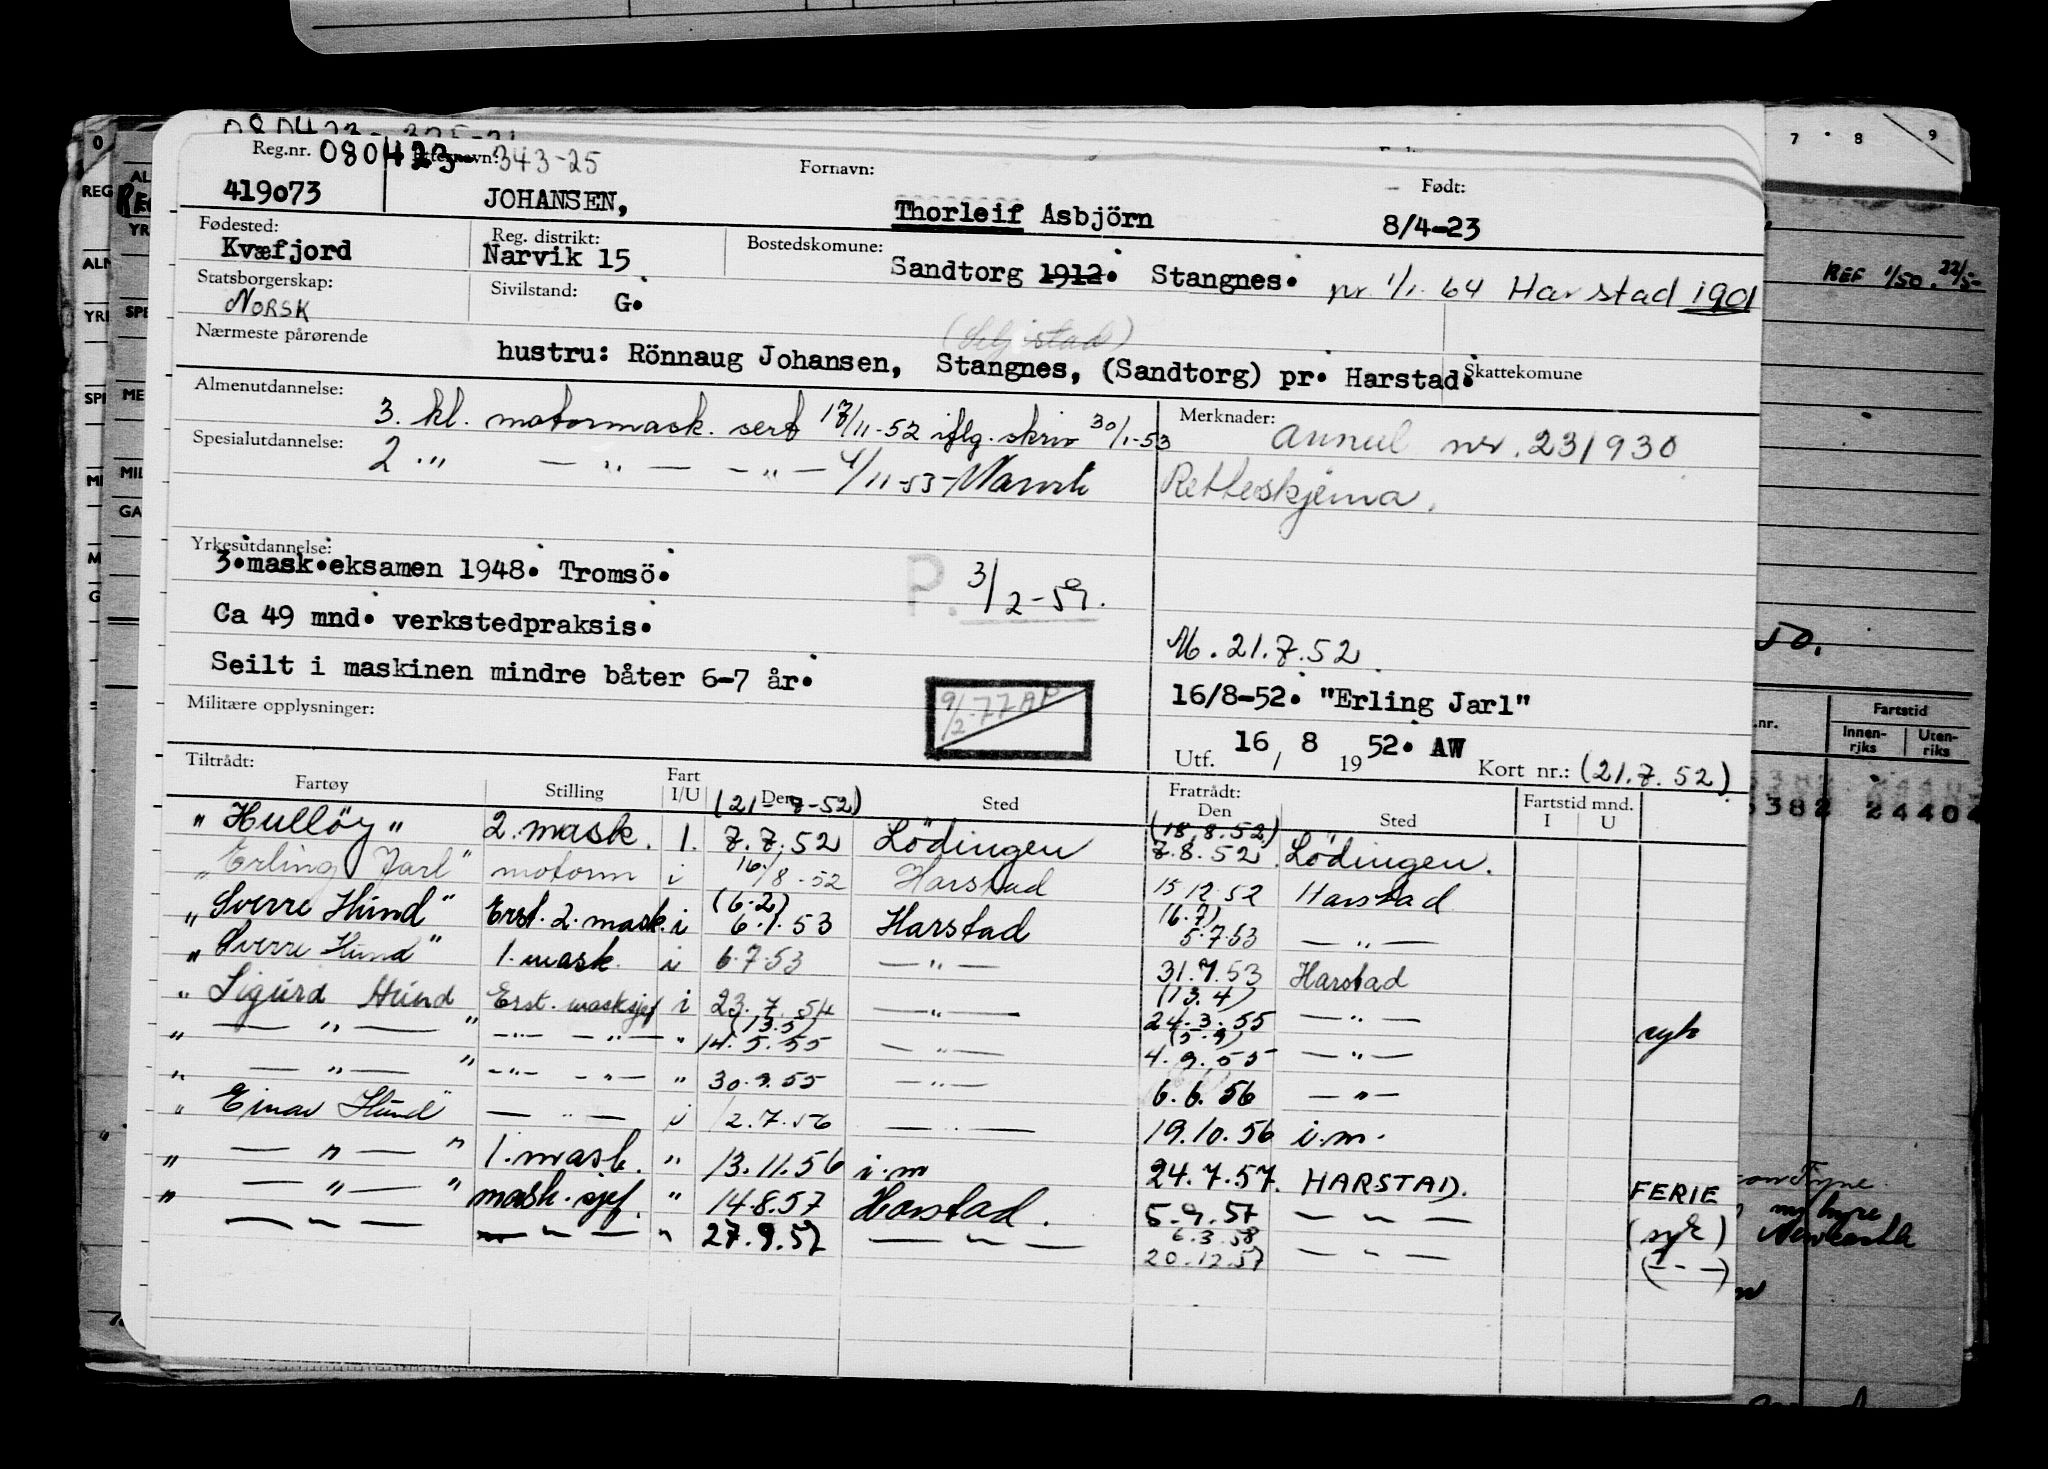 Reg.nr. 080423-343-25 Etternavn: Fornavn: Født:
419073 JOHANSEN, Thorleif Asbjörn 8/4-23
Fødested: Reg. distrikt: Bostedskomune:
Kvæfjord Narvik 15 Sandtorg 1912. Stangnes. pr 1/1. 64 Harstad 1901
Statsborgerskap: Sivilstand:
NORSK G.
Nærmeste pårørende
hustru: Rönnaug Johansen, Stangnes, (Sandtorg) pr. Harstad. Skattekomune
Almenutdannelse: Merknader:
3. kl. motormask. sert 17/11-52 iflg. skriv 30/1-53 annul nr. 231930
Spesialutdannelse:
2 " — " — — " — 4/11-53-Narvik Retteskjema.
Yrkesutdannelse:
3.mask.eksamen 1948. Tromsö. P. 3/2-59.
Ca 49 mnd. verkstedpraksis.
M. 21.7.52
Seilt i maskinen mindre båter 6-7 år.
16/8-52. "Erling Jarl"
Militære opplysninger: 9/2-77 AP
Utf. 16/8 1952. AW Kort nr.: (21.7.52)
Tiltrådt: Fratrådt:
Fartøy Stilling Fart I/U Den Sted Den Sted Fartstid mnd. I U
(21-7-52) (18.8.52)
"Hullöy" 2. mask. I. 7.7.52 Lödingen 7.8.52 Lödingen.
"Erling Jarl" motorm i 16/8-52 Harstad 15.12.52 Harstad
(6.2) (6.7)
"Sverre Hund" Erst. 2. mask. i 6.1.53 Harstad 5.7.53 — " —
"Sverre Hund" 1. mask. i 6.7.53 — " — 31.7.53 Harstad
(13.4)
"Sigurd Hund Erst. masksjef i 23.7.54 — " — 24.3.55 — " — syk
(13.5) (5.9)
" — " — " — " — — " — " 14.5.55 — " — 4.9.55 — " —
" — " — " — " — — " — " 30.9.55 — " — 6.6.56 — " —
"Einar Hund" — " — i 12.7.56 — " — 19.10.56 i.m.
" — " — " 1. mask. " 13.11.56 i.m 24.7.57. HARSTAD. FERIE
" — " — " mask. sjef. " 14.8.57 Harstad. 5.9.57 — " — (syk)
6.3.58
— " — — " — " 27.9.57 — " — 20.12.57 — " — (— " —)
REF 1/50. 22/5-
50.
nr. Fartstid
Innen-riks Uten-riks
5382 24404
7 8 9
Newcastle